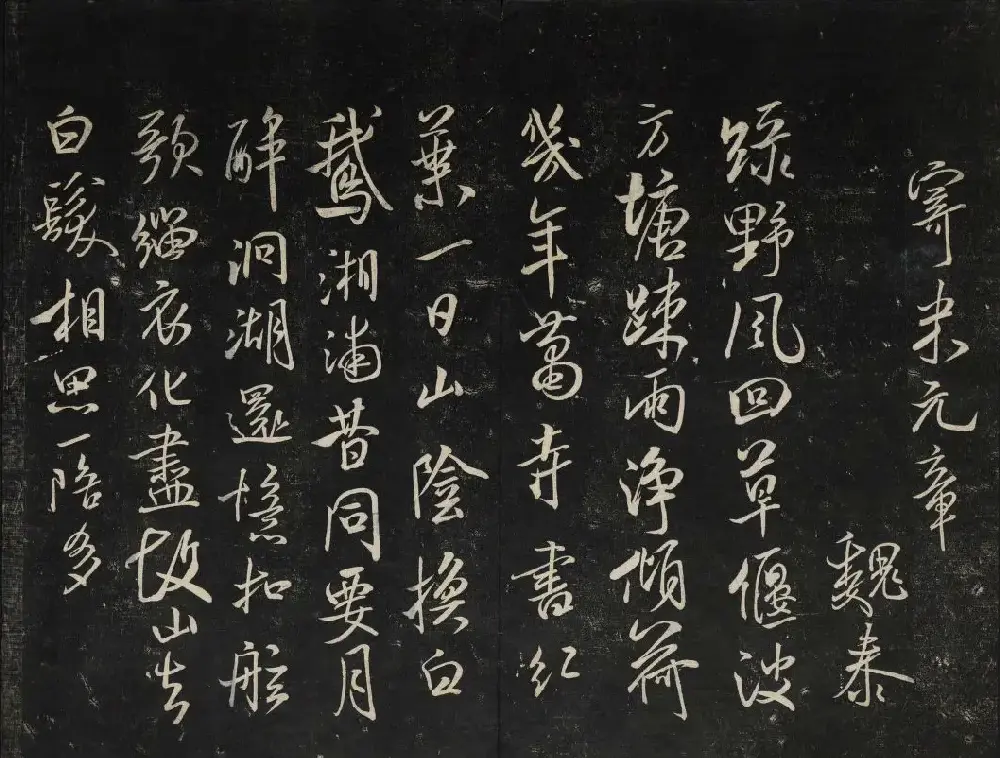 寄米元章
魏泰
綠野風回草偃波
方塘疎雨淨傾荷
幾年蕭寺書紅
葉一日山陰換白
鵝湘浦昔同要月
醉洞湖還憶扣舷
歌緇衣化盡故山去
白髮相思一陪多